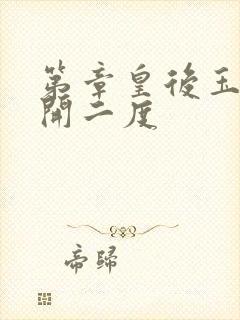 第章皇後玉
開二度
帝歸